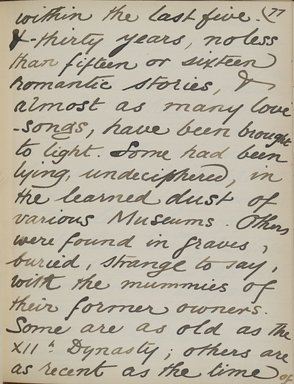 within the last five- (77
&-thirty years, no less
than fifteen or sixteen
romantic stories, &
almost as many love
-songs, have been brought
to light. Some had been
lying, undeciphered, in
the learned dust of
various Museums. Others
were found in graves,
buried, strange to say,
with the mummies of
their former owners.
Some are as old as the
XIIth Dynasty; others are
as recent as the time
of